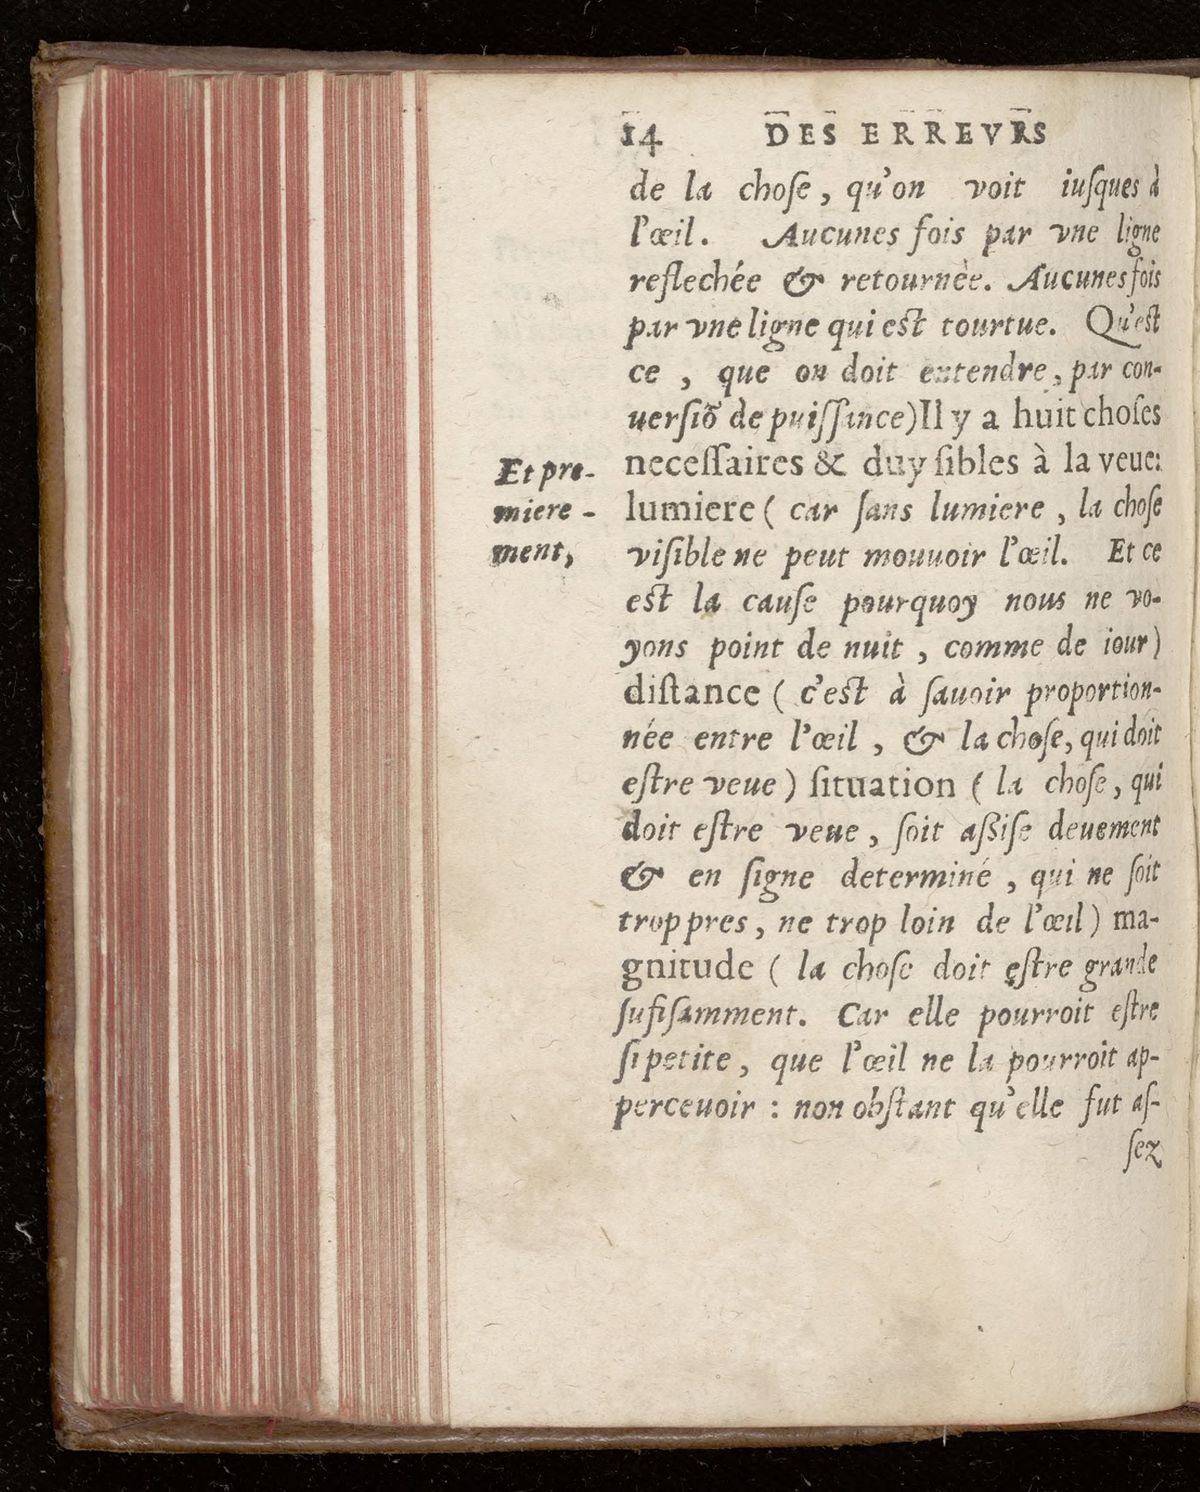 14 DES ERREVRS
de la choſe, qu'on voit iuſques à
l'œil. Aucunes fois par vne ligne
reflechée & retournèe. Aucunes fois
par vne ligne qui est tourtue. Qu'est
ce, que on doit entendre, par con-
uerſiõ de puiſſance) Il y a huit choſes
neceſſaires & duyſibles à la veue:
Et pre-
miere-
ment,
lumiere ( car ſans lumiere, la choſe
viſible ne peut mouuoir l'œil. Et ce
est la cauſe pourquoy nous ne vo-
yons point de nuit, comme de iour)
diſtance ( c'est à ſauoir proportion-
née entre l'œil, & la choſe, qui doit
eſtre veue) ſituation ( la choſe, qui
doit eſtre veue, ſoit aßiſe deuement
& en ſigne determiné, qui ne ſoit
trop pres, ne trop loin de l'œil) ma-
gnitude ( la choſe doit eſtre grande
ſufiſamment. Car elle pourroit eſtre
ſi petite, que l'œil ne la pourroit ap-
perceuoir : non obſtant qu'elle fut aſ-
ſez